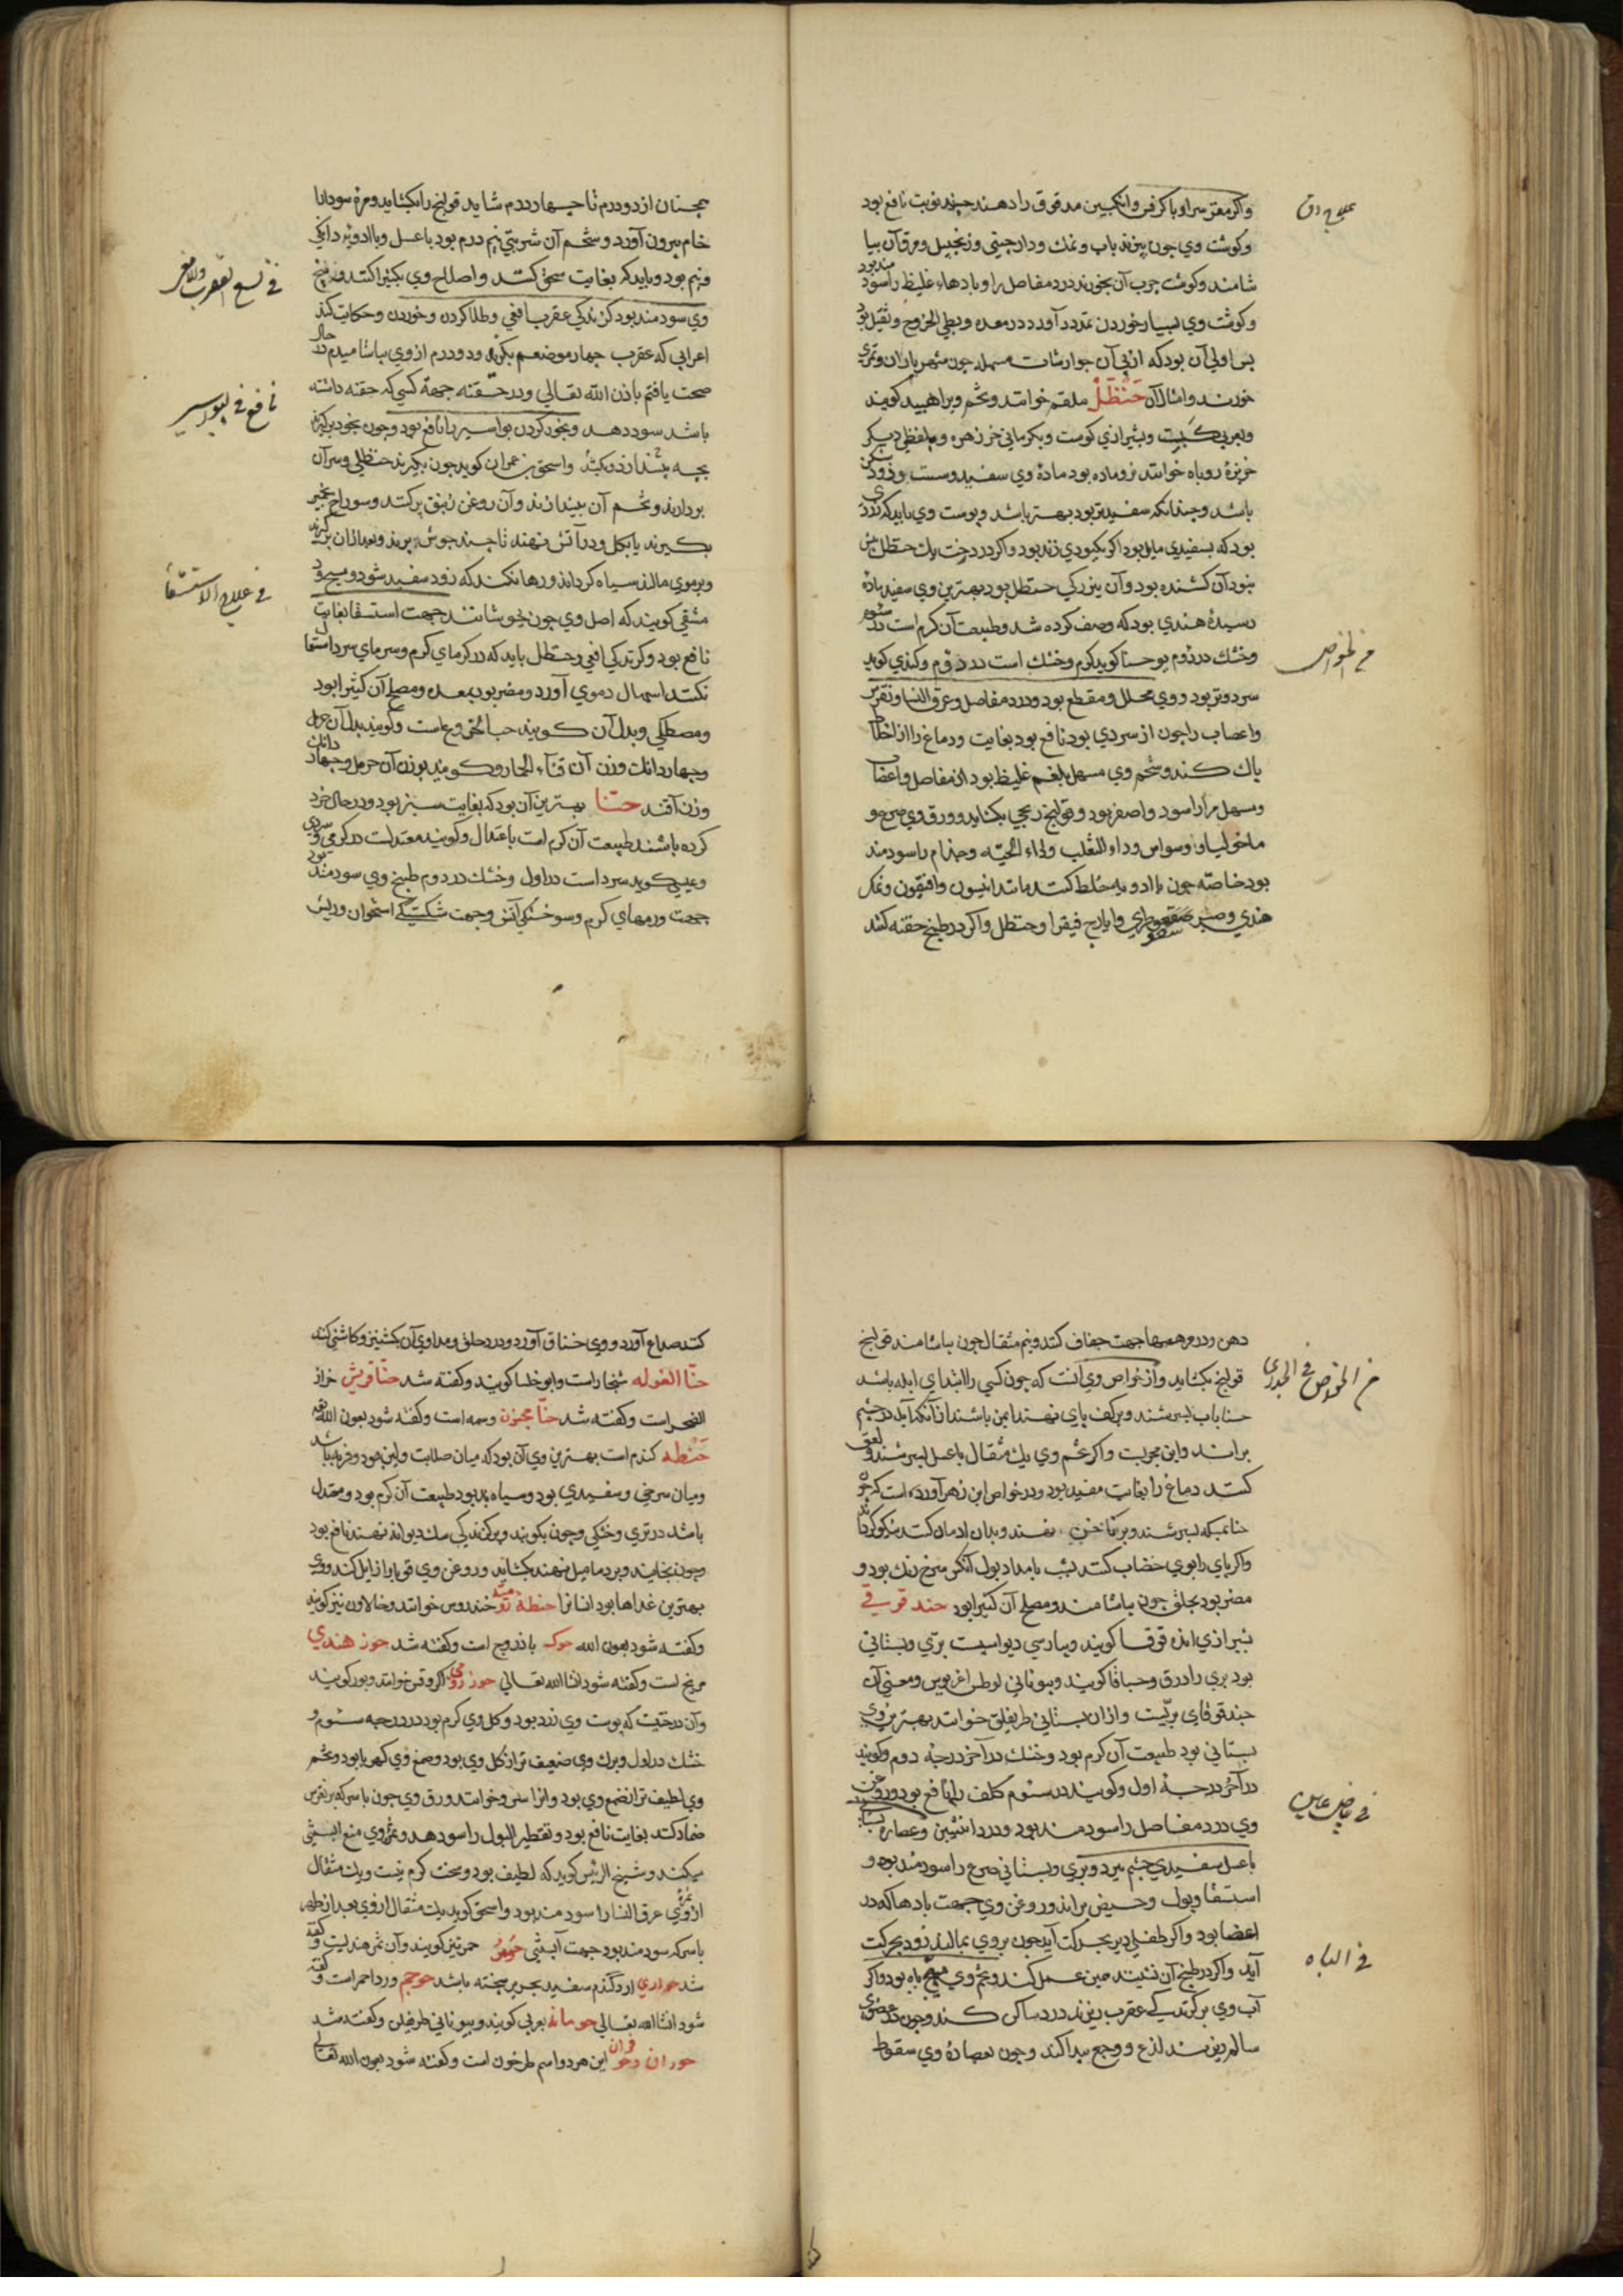 علاج دق
واکر مغز سر او با کرفس وانکبین مدقوق را دهند جند نوبت نافع بود
وکوشت وی جون بپزند باب ونمک ودارجینی وزنجبیل ومرق آن بیا
شامند وکوشت جرب آن بخورند درد مفاصل را وبادهاء غلیظ را سود مند بود
وکوشت وی بسیار خوردن تمدد آورد در معده وبطی الخروج وثقیل بود
بس اولی آن بود که از پی آن جوارشات مسهله جون شهریاران وتمری
خورند وامثال آن حَنْظَلْ علقم خوانند وتخم ویرا هبید کویند
وبعربی کبست وبشیرازی کوست وبکرمانی خر زهره وبلفظی دیکر
خربزهٔ روباه خوانند نر وماده بود مادهٔ وی سفید وسست وزود شکن
باشد وجندانکه سفیدتر بود بهتر باشد وبوست وی باید که زرد
بود که بسفیدی مایل بود اکر بکبودی زند بود واکر در درخت یک حنظل بیش
نبود آن کشنده بود وآن بزرکی حنظل بود بهترین وی سفید مادهٔ
رسیدهٔ هندی بود که وصف کرده شد وطبیعت آن کرم است در سئوم
فی الخواص
وخشک در دوم یوحنا کوید کرم وخشک است در دوم وکندی کوید
سرد وتر بود ووی محلل ومقطع بود ودرد مفاصل وعرق النسا ونقرس
واعصاب را جون از سردی بود نافع بود بغایت ودماغ را از اخلاط
باک کند وشحم وی مسهل بلغم غلیظ بود از مفاصل واعضا
ومسهل مرار اسود واصفر بود وقولنج ریحی بکشاید وورق وی صرع و
ماخولیا ووسواس وداء الثعلب وداء الحیّه وجذام را سودمند
بود خاصّه جون با ادویه خلط کنند مانند انیسون وافتیمون ونمک
هندی وصبر سقوطری وایارج فیقرا وحنظل واکر در طبیخ حقنه کنند
همجنان از دو درم تا جهار درم شاید قولنج را بکشاید ومرهٔ سودا را
خام بیرون آورد وشحم آن شربتی نیم درم بود با عسل وبا ادویه دانکی
فی لسع العقرب والافعی
ونیم بود وباید که بغایت سحق کنند واصلاح وی بکثیرا کنند وبیخ
وی سودمند بود کزندکی عقرب وافعی وطلا کردن وخوردن وحکایت کند
اعرابی که عقرب جهار موضعم بکزید ودو درم از وی بیاشامیدم در حال
نافع فی بواسیر
صحت یافتم باذن الله تعالی ودر حقنه جهة کسی که حقنه داشته
باشد سود دهد وبخور کردن بواسیر را نافع بود وجون بخود برکیرند
بجه بیندازد وبکشد واسحق بن عمران کوید جون بکیرند حنظلی وسر آن
بردارند وتخم آن بیندازند وآن روغن زنبق پر کنند وسوراخ بخمیر
بکیرند یا بکل ودر آتش نهند تا جند جوش بزند وبعد ازان برکیرند
فی علاج الاستسقا
وبرموی مالند سیاه کرداند ورها نکند که زود سفید شود ومسیح
دمشقی کویند که اصل وی جون بجوشانند جهت استسقا بغایت
نافع بود وکزیدکی افعی وحنظل باید که در کرمای کرم وسرمای سرد استعمال
نکنند اسهال دموی آورد ومضر بود بمعده ومصلح آن کثیرا بود
ومصطکی وبدل آن کویند حب الخروع است وکویند بدل آن حرمل
وجهار دانک وزن آن قثاء الحمار وکویند بوزن آن حرمل وجهار دانک
وزن آن قند حنّا بهترین آن بود که بغایت سبز بود ودر حال خرد
کرده باشند طبیعت آن کرم است باعتدال وکویند معتدلست در کرمی وسردی
وعیسی کوید سرد است در اول وخشک در دوم طبیخ وی سودمند بود
جهت ورمهای کرم وسوختکی آتش وجهت شکستکی استخوان وریش
دهن ودر مرهمها جهت جفاف کنند ونیم مثقال جون بیاشامند قولنج
من الخواص فی الجدری
قولنج بکشاید واز خواص وی آنست که جون کسی را ابتدای ابله باشد
حنا باب بسرشند وبر کف پای نهند ایمن باشند از آنکه آبله در جشم
براند واین مجربست واکر تخم وی یک مثقال با عسل بسرشند ولعق
کنند دماغ را بغایت مفید بود ودر خواص ابن زهر آورده است که جون
واکر پای را بوی خضاب کنند بشب بامداد بول آنکس سرخ رنک بود و
مضر بود بحلق جون بیاشامند ومصلح آن کثیرا بود حند قوقی
بشیرازی انده قوقا کویند وبپارسی دیواسپست برّی وبستانی
بود بری را درق وحباقا کویند وبیونانی لوطس اغریوس ومعنی آن
حندقوقای بریّست وازان بستانی طریفلن خوانند بهترین وی
بستانی بود طبیعت آن کرم بود وخشک در آخر درجهٔ دوم وکویند
در آخر درجهٔ اول وکویند در سئوم کلف را نافع بود وروغن
فی بیاض عین
وی درد مفاصل را سودمند بود ودرد انثیین وعصارهٔ
با عسل سفیدی جشم ببرد وبری وبستانی صرع را سودمند بود و
استسقا وبول وحیض براند وروغن وی جهت بادها که در
اعضا بود واکر طفلی دیر بحرکت آید جون بروی بمالند زود بحرکت
فی الباه
آید واکر در طبیخ آن نشینند همین عمل کند وتخم وی مهیج باه بود واکر
آب وی بر کزیدکی عقرب ریزند درد ساکن کند وجون در عضوی
سالم ریزند لذع ووجع پیدا کند وجون بعصارهٔ وی سعوط
کنند صداع آورد ووی خناق آورد ودرد حلق ومداوی آن بکشنیز وکاسنی کنند
حنّا الغوله شنجار است وابو خلسا کویند وکفته شد حنّا قریش حزاز
الصخر است وکفته شد حنّا مجنون وسمه است وکفته شود بعون الله تعالی
حنطه کندم است بهترین وی آن بود که میان صلابت ولین بود وفربه باشد
ومیان سرخی وسفیدی بود وسیاه بد بود طبیعت آن کرم بود ومعتدل
باشد در تری وخشکی وجون بکوبند وبر کزندکی سک دیوانه نهند نافع بود
وجون بخایند وبر دمامیل نهند بکشاید وروغن وی قوبا را زایل کند ووی
بهترین غذاها بود انسانرا حنطهٔ رومیّه خندروس خوانند وخالاون نیز کویند
وکفته شود بعون الله حوک باذروج است وکفته شد حوز هندی
وکفته شود انشاالله تعالی حوز رومی اکروقن خوانند وبور کویند
وآن درختیست که پوست وی زرد بود وکل وی کرم بود در درجه سئوم و
خشک در اول وبرک وی ضعیف تر از کل وی بود وصمغ وی کهربا بود وتخم
وی لطیف تر از صمغ وی بود وانرا خوانند ورق وی جون با سرکه بر نقرس
ضماد کنند بغایت نافع بود وتقطیر البول را سود دهد وثمر وی منع ابستنی
میکند وشیخ الرئیس کوید که لطیف بود وسخت کرم نیست ویک مثقال
از ثمرهٔ وی عرق النسا را سودمند بود واسحق کوید یک مثقال از وی بعد از طهر
با سرکه سودمند بود جهت آبستنی حُومَرْ حمر نیز کویند وآن تمر هندیست وکفته
شد حواری آرد کندم سفید بحریر بیخته باشد حوجم ورد احمر است وکفته
شود انشاالله تعالی حومانه بعربی کویند وبیونانی طریفلن وکفته شد
حوران وحوفران این هر دو اسم طرخون است وکفته شود بعون الله تعالی